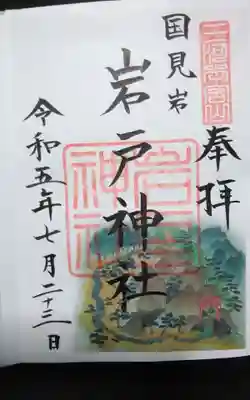 奉拝
国見岩
岩戸神社
令和五年七月二十三日